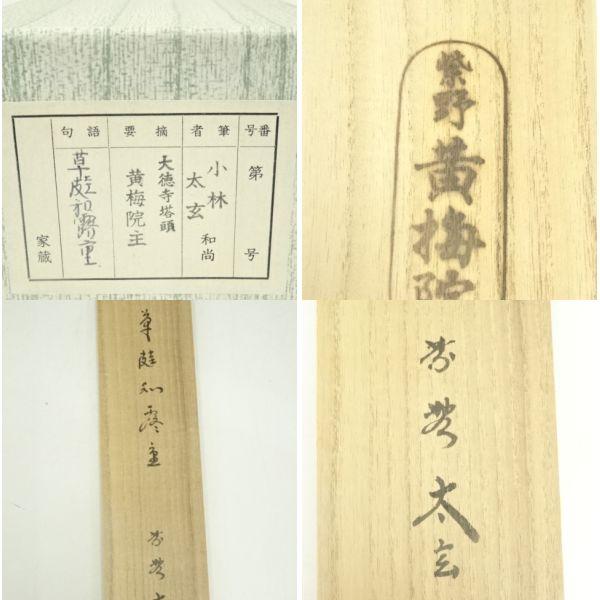 番号
第 号
筆者
小林
太玄 和尚
摘要
大徳寺塔頭
黄梅院主
語句
草庭和露重
家蔵
紫野
黄梅院
草庭和露重
紫野 太
紫野 太玄